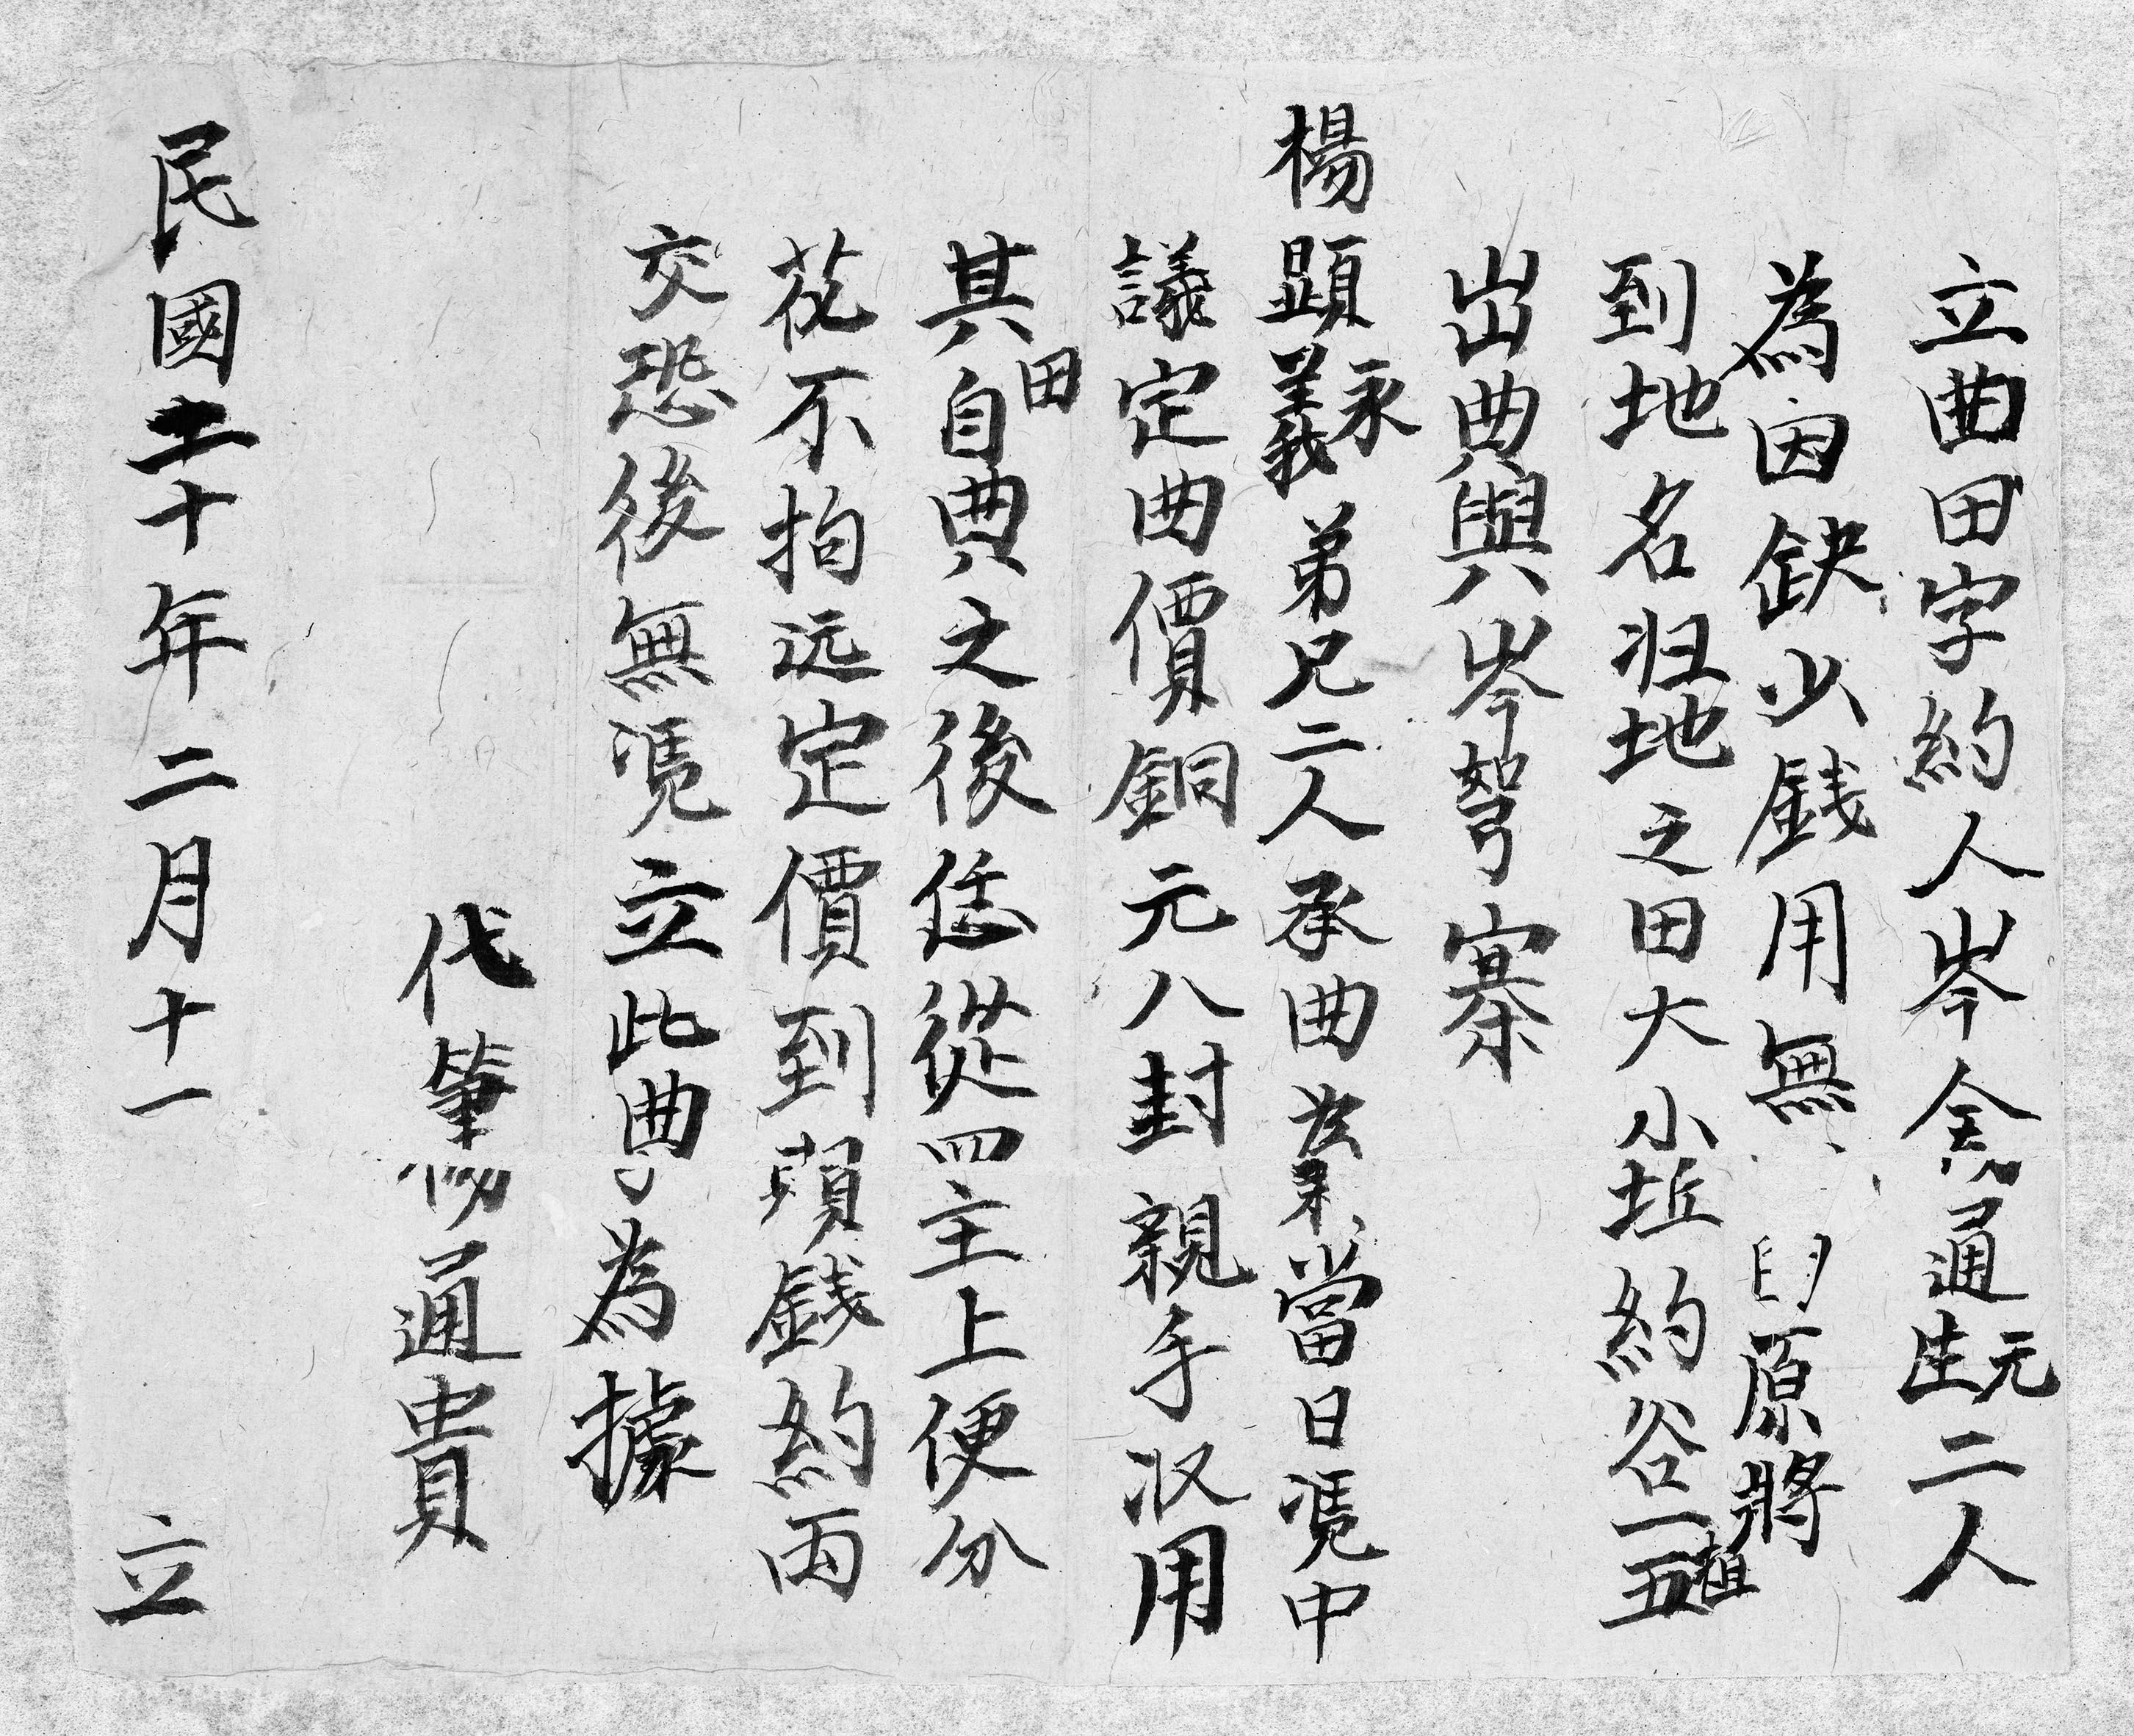 立曲田字約人岑金通生元二人
為因缺少銭用無 原將
到地名归地之田大小坵約谷一五担
出典與岑弩寨
楊顕義永弟兄二人承曲 當日凴中
議定曲價銅元八封親手収用
其田自典之後恁從四主上便分
花不拘远定價到頭銭約両
交恐後無凴立此曲字為據
代筆 通貴
民國二十年二月十一 立